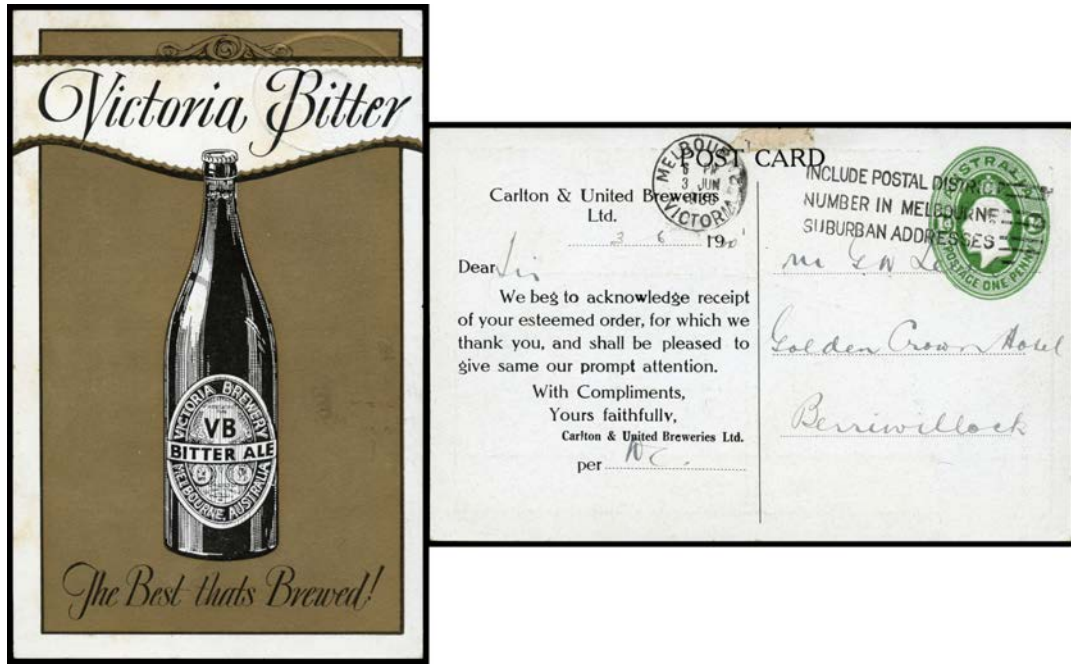 Victoria Bitter
VICTORIA BREWERY
VB
BITTER ALE
MELBOURNE, AUSTRALIA
The Best thats Brewed!
POST CARD
MELBOURNE
6 PM
3 JUN
VICTORIA
INCLUDE POSTAL DISTRICT
NUMBER IN MELBOURNE
SUBURBAN ADDRESSES
POSTAGE ONE PENNY
Carlton & United Breweries
Ltd.
3 6 19
Dear Sir
We beg to acknowledge receipt
of your esteemed order, for which we
thank you, and shall be pleased to
give same our prompt attention.
With Compliments,
Yours faithfully,
Carlton & United Breweries Ltd.
per
Golden Crown Hotel
Berriwillock